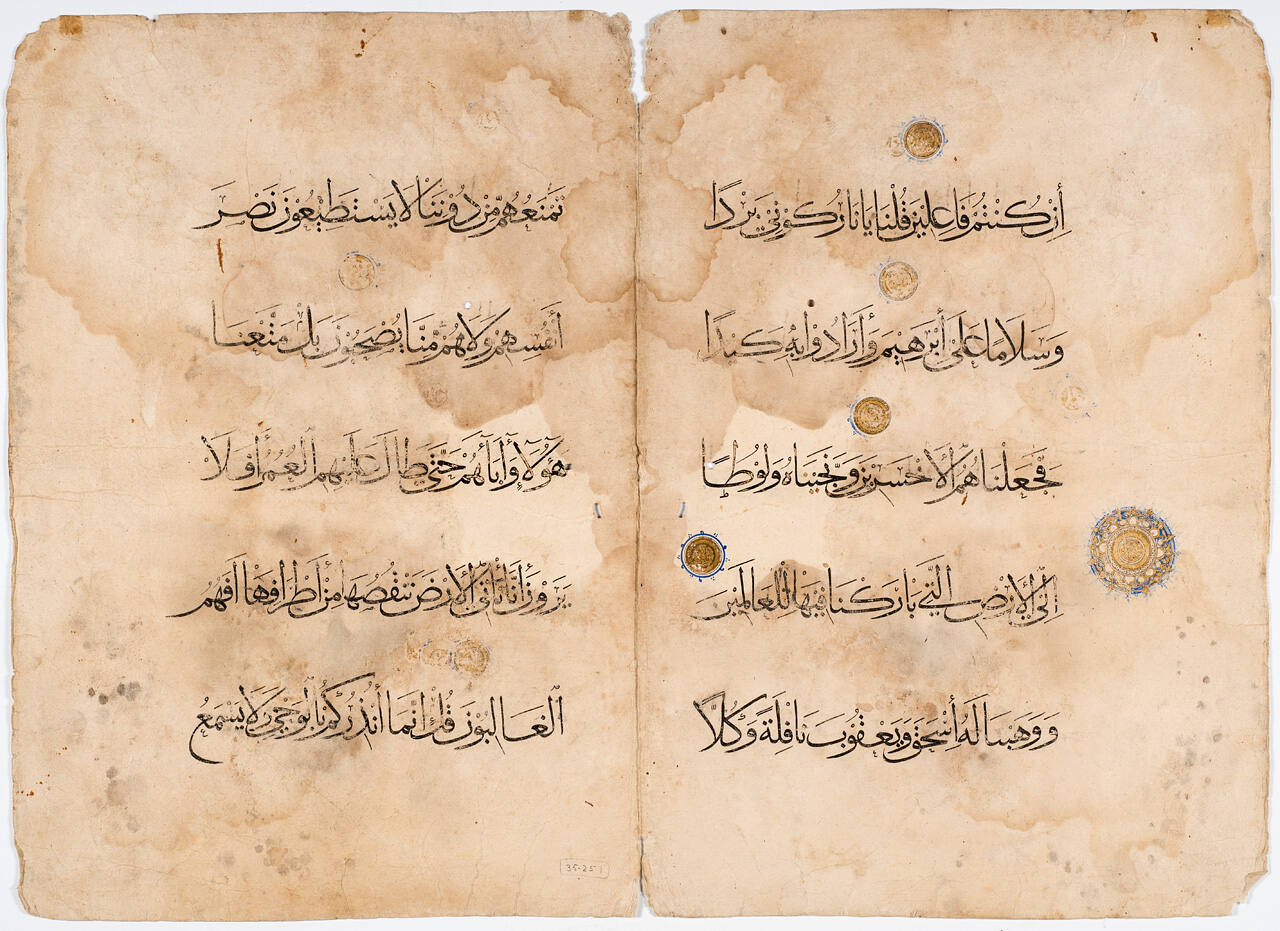 أن كنتم فاعلين قلنا يا نار كوني بردا
وسلاما على أبرهيم وأرادوا به كيدا
فجعلناهم الأخسرين ونجيناه ولوطا
الى الأرض التي باركنا فيها للعالمين
ووهبنا له أسحق ويعقوب نافلة وكلا
تمنعهم من دوننا لا يستطيعون نصر
أنفسهم ولا هم منا يصحبون بل متعنا
هؤلا وآبأهم حتى طال عليهم العمر أفلا
يرون أنا نأتي الأرض ننقصها من أطرافها أفهم
الغالبون قل انما أنذركم بالوحي ولا يسمع
35-251